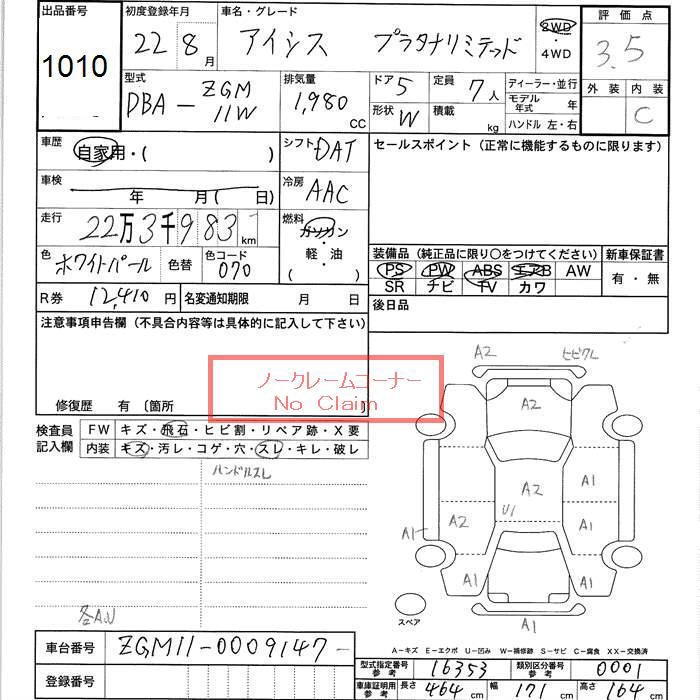 出品番号 初度登録年月 車名・グレード 評価点
1010 22 8月 アイシス プラタナリミテッド 2WD・4WD 3.5
型式 排気量 ドア 5 定員 7人 ディーラー・並行 外装 内装
DBA-ZGM11W 1,980 CC 形状 W 積載 kg モデル年式 年 C
ハンドル 左・右
車歴 自家用・( ) シフト DAT セールスポイント(正常に機能するものに限ります)
車検 年 月( 日) 冷房 AAC
走行 22万3千983 km 燃料 ガソリン・軽・油 ( )
色 ホワイトパール 色替 色コード 070 装備品(純正品に限り○をつけてください) 新車保証書
PS PW ABS エアB AW 有・無
SR ナビ TV カワ
R券 12,410円 名変通知期限 月 日 後日品
注意事項申告欄(不具合内容等は具体的に記入して下さい)
ノークレームコーナー
No Claim
修復歴 有〔箇所
検査員記入欄 FW キズ・飛石・ヒビ割・リペア跡・X要
内装 キズ・汚レ・コゲ・穴・スレ・キレ・破レ
ハンドルスレ
A2 ヒビワレ
A2
A1
A2
U1
A1 A2 A1
A1 A1
A1
スペア
各A,U
A-キズ E-エクボ U-凹み W-補修跡 S-サビ C-腐食 XX-交換済
車台番号 ZGM11-0009147-
登録番号
型式指定番号 参考 16353 類別区分番号 参考 0001
車庫証明用 参考 長さ 464cm 幅 171cm 高さ 164cm